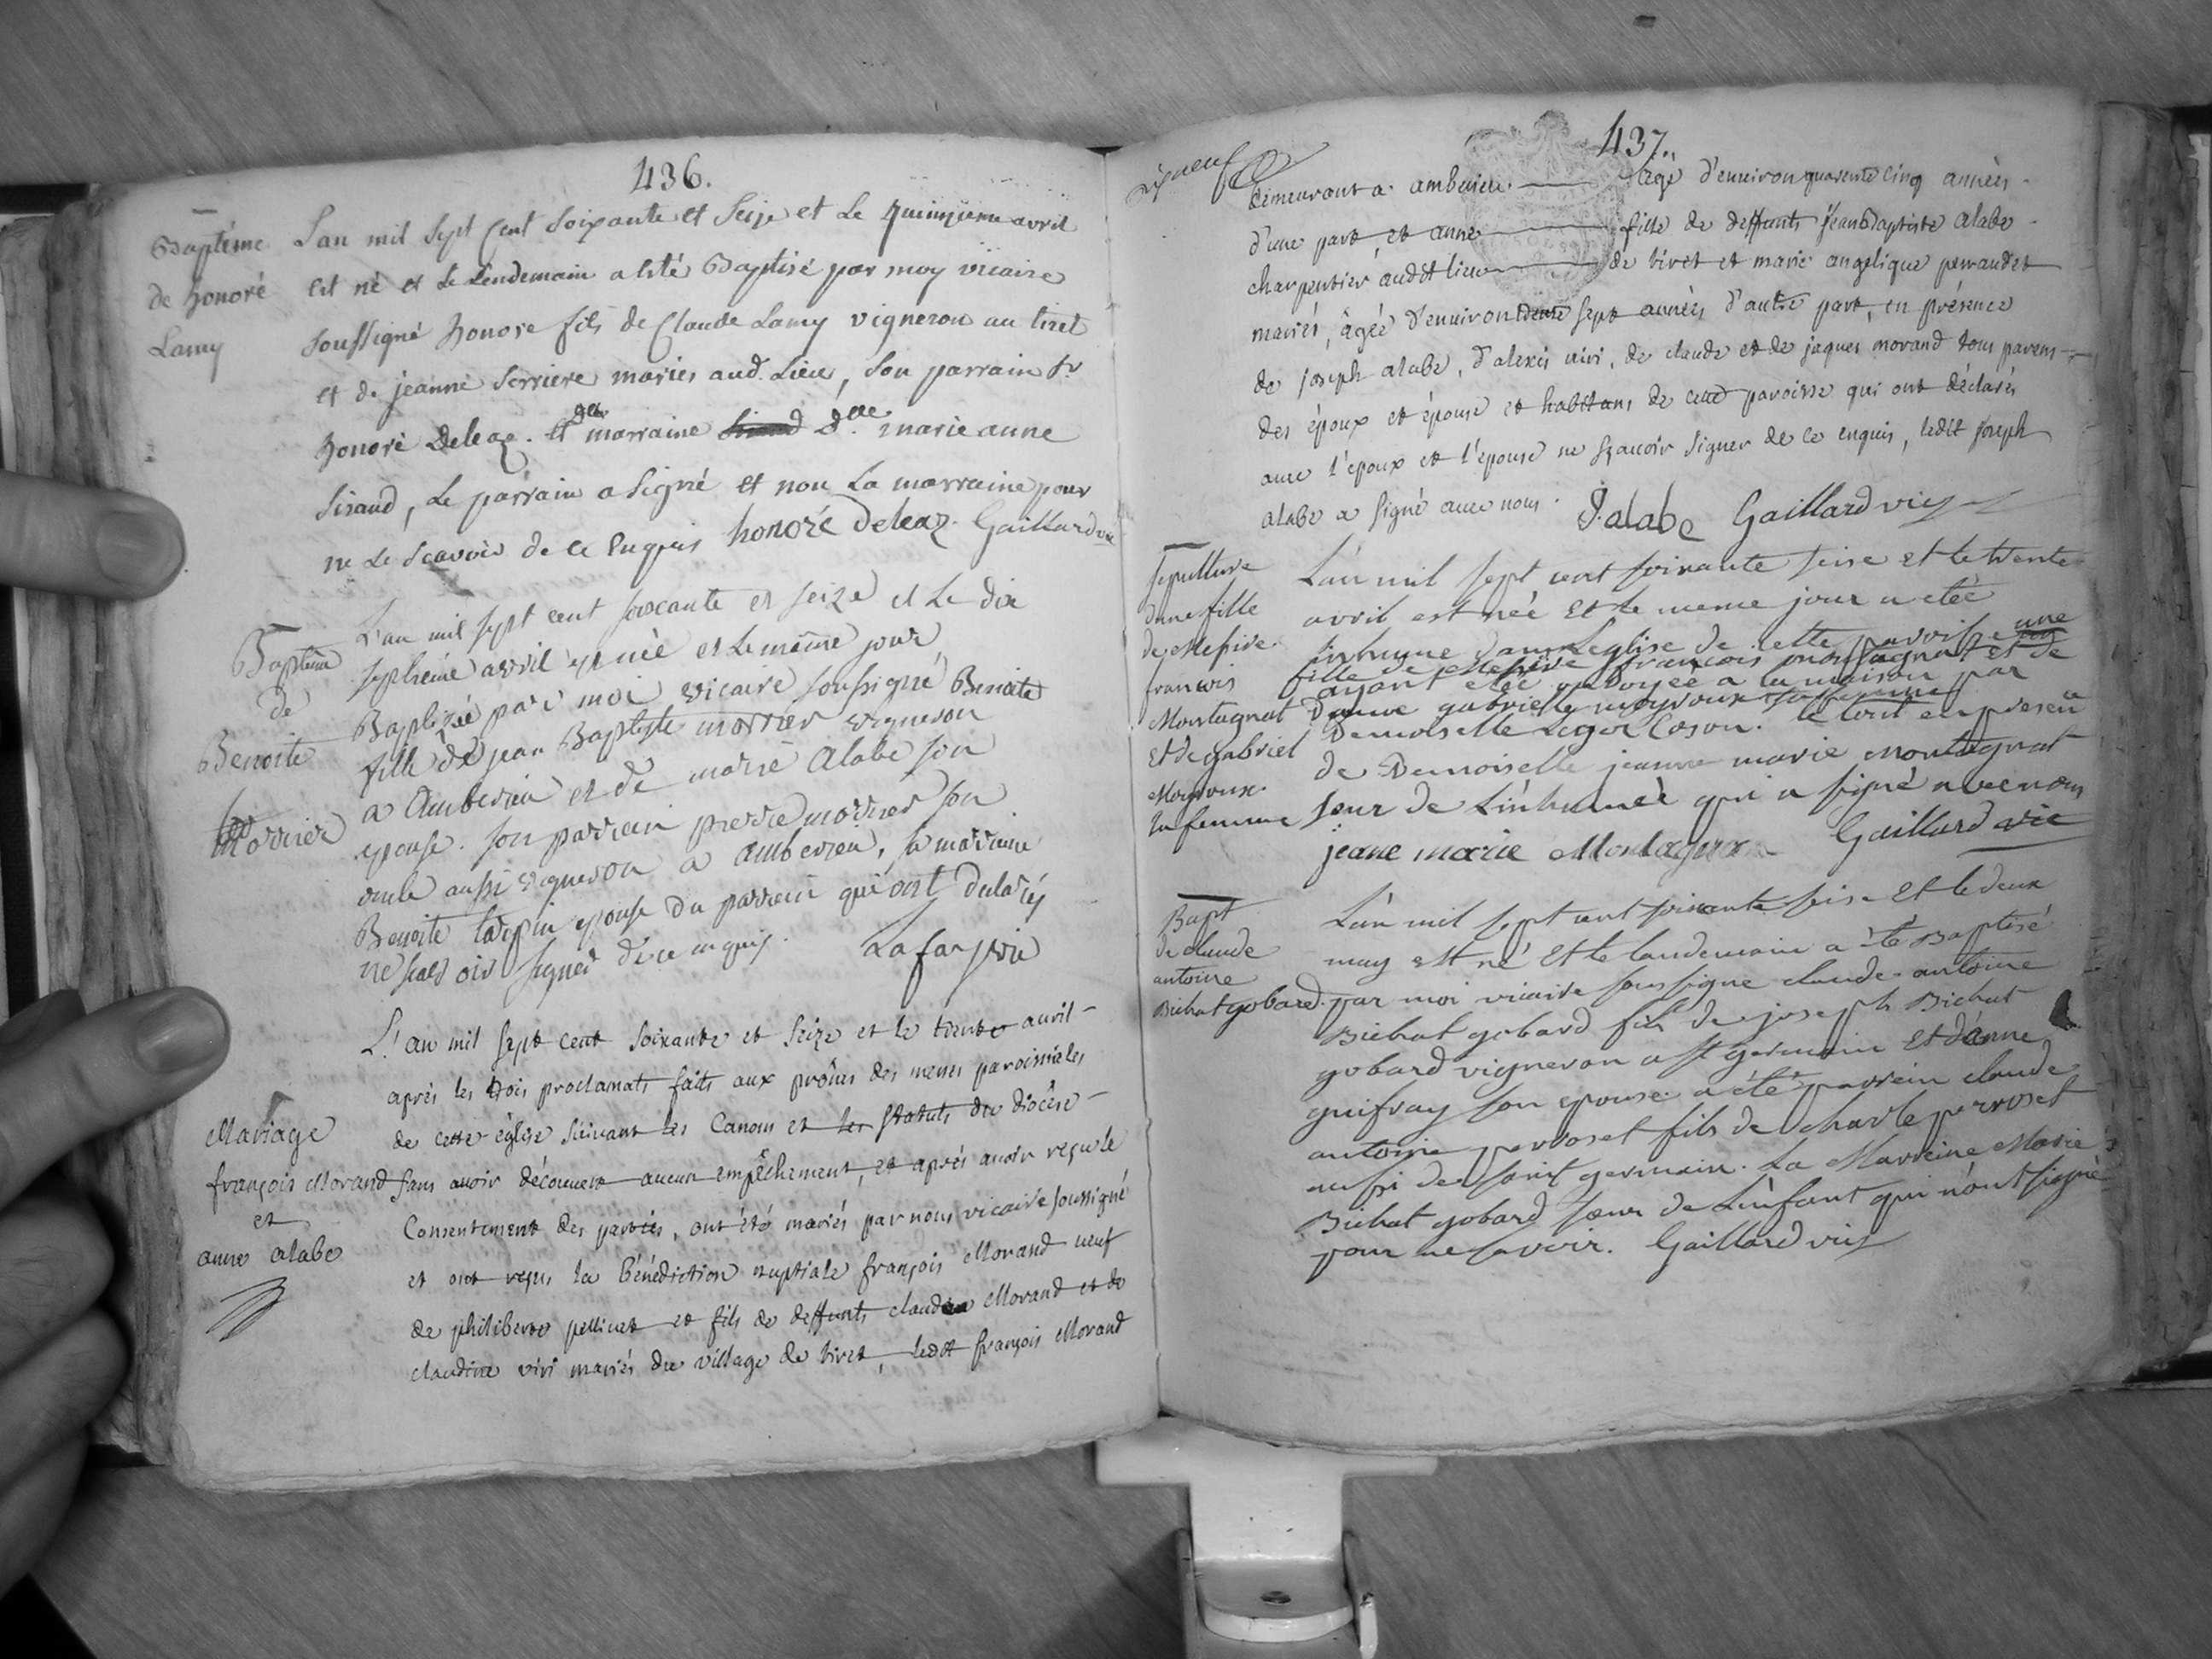 436.
Baptême
de honoré
Lamy
L'an mil sept cent soixante et seize et le quinzieme avril
est né et le Lendemain a été Baptisé par moy vicaire
soussigné honore fils de Claude Lamy vigneron au tiret
et de jeanne serriere mariés aud. Lieu, son parrain Sr
honoré Deleaz. et marraine dlle marie anne
Siraud, Le parrain a signé et non La marraine pour
ne Le scavoir de ce Enquis honoré Deleaz. Gaillard vic
Baptême
de
Benoite
Morrier
L'an mil sept cent soixante et seize et Le dix
septieme avril est née et le même jour
Baptizée par moi vicaire soussigné Benoite
fille de jean Baptiste morrier vigneron
a Amberieu et de marie Alabe son
epouse. son parrain pierre morrier son
oncle aussi vigneron a Amberieu, sa marraine
Benoite epouse du parrain qui ont declarés
ne scavoir signer de ce enquis.
Mariage
françois Morand
et
anne alabe
L'an mil sept cent soixante et seize et le trente avril
après les trois proclamats faits aux prônes des messes paroissiales
de cette église suivant les Canons et les statuts du diocèse
sans avoir découvert aucun empêchement, et après avoir reçu le
Consentement des parties, ont été mariés par nous vicaire soussigné
et ont reçus la bénédiction nuptiale françois Morand veuf
de philiberte pellicet et fils de deffunts claude Morand et de
claudine vivi mariés du village de tiret, ledit françois Morand
437.
demeurant a amberieu agé d'environ quarente cinq années
d'une part, et anne fille de deffunts jean Baptiste alabe
charpentier audit lieu de tiret et marie angelique perraudet
mariés, âgée d'environ trente sept années d'autre part, en présence
de joseph alabe, d'alexis vivi, de claude et de jaques morand tous parens
des époux et épouse et habitans de cette paroisse qui ont déclarés
avec l'epoux et l'epouse ne sçavoir signer de ce enquis, ledit joseph
alabe a signé avec nous. J. alabe Gaillard vic
sepulture
dune fille
de Messire
francois
Montagnat
Et de gabriel
Moyroux
sa femme
L'an mil sept cent soixante seise et le trente
avril est née Et le meme jour a etée
inhumé dans Leglise de cette paroisse une
fille de Messire francois montagnat et de
Dame gabrielle moyroux sa femme
ayant etée ondoyée a la maison par
Demoiselle Leger Coson. le tout en presence
de Demoiselle jeanne marie Montagnat
sœur de L'inhumée qui a signé avec nous
jeane marie Montagnat Gaillard vic
Bapt
de claude
antoine
Bichat gobard.
L'an mil sept cent soixante seise Et le deux
may est né Et le landemain a été Baptisé
par moi vicaire soussigne claude antoine
Bichat gobard fils de joseph Bichat
gobard vigneron a st germain Et d'anne
guifray son epouse a été parrein claude
antoine perroset fils de charle perroset
aussi de saint germain. La Marreine Marie
Bichat gobard sœur de L'enfant qui n'ont signé
pour ne savoir. Gaillard vic